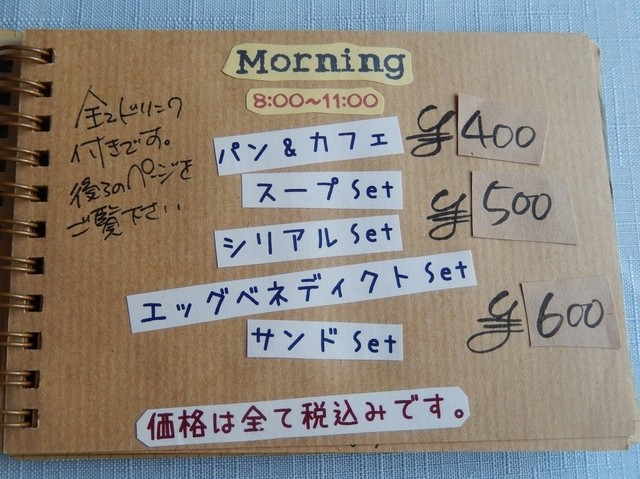 Morning
8:00~11:00
全てドリンク
付きです。
後ろのページを
ご覧下さい
パン&カフェ ¥400
スープSet
シリアルSet ¥500
エッグベネディクトSet
サンドSet ¥600
価格は全て税込みです。